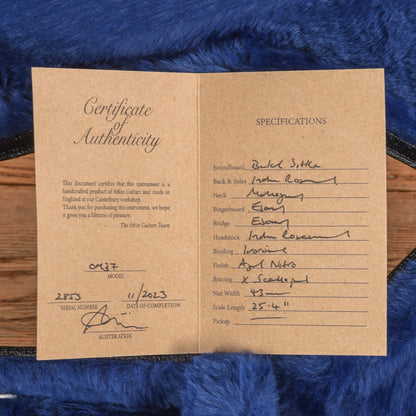 Certificate
of
Authenticity
This document certifies that this instrument is a
handcrafted product of Atkin Guitars and made in
England at our Canterbury workshop.
Thank you for purchasing this instrument, we hope,
it gives you a lifetime of pleasure.
- The Atkin Guitars Team
OM37
MODEL
2853 11/2023
SERIAL NUMBER DATE OF COMPLETION
ALISTER ATKIN
SPECIFICATIONS
Soundboard Baked Sitka
Back & Sides Indian Rosewood
Neck Mahogany
Fingerboard Ebony
Bridge Ebony
Headstock Indian Rosewood
Binding Ivoroid
Finish Aged Nitro
Bracing X Scalloped
Nut Width 43mm
Scale Length 25.4"
Pickup